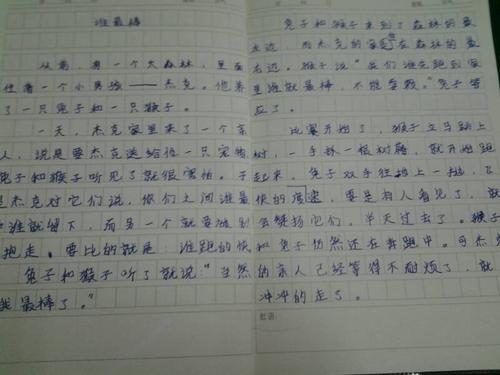 谁最棒
从前，有一个大森林，里面
住着一个小男孩——杰克。他养
了一只兔子和一只猴子。
一天，杰克家里来了一个亲
人，说是要杰克送给他一只宠物
兔子和猴子听见了就很害怕。于
是杰克对它们说，你们之间谁最
谁就留下，而另一个就要被别
抱走。要比的就是：谁跑的快
兔子和猴子听了就说：“当然
我最棒了。”
兔子和猴子来到了森林的最
左边，而杰克的家在森林的最
右边。猴子说“我们谁先跑到家
里谁就最棒，不能耍赖。”兔子答
应了。
比赛开始了，猴子立马跳上
树，一手抓一根树藤，就开始跑
起来，兔子双手往地上一
快的度速，要是有人看见了，就
会赞扬它们，半天过去了。猴子
和兔子仍然还在奔跑中。可杰
的亲人已经等得不耐烦了，就
冲冲的走了。
批语：